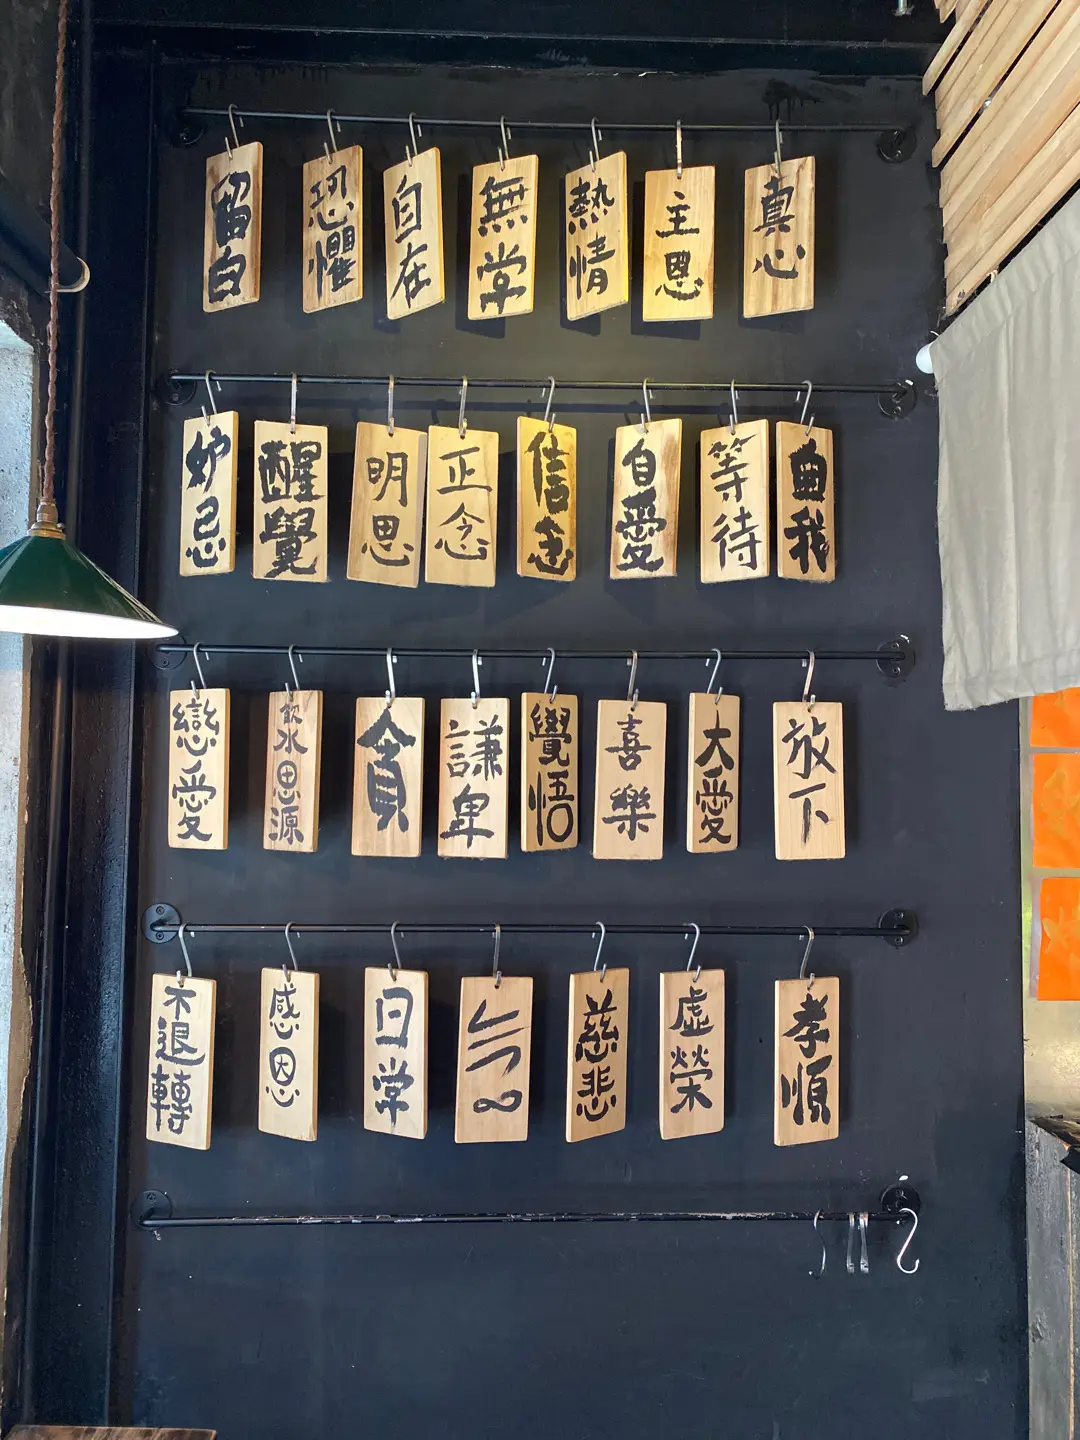 留白
恐懼
自在
無常
熱情
主恩
真心
妒忌
醒覺
明思
正念
信念
自愛
等待
自我
戀愛
飲水思源
貪
謙卑
覺悟
喜樂
大愛
放下
不退轉
感恩
日常
慈悲
虛榮
孝順